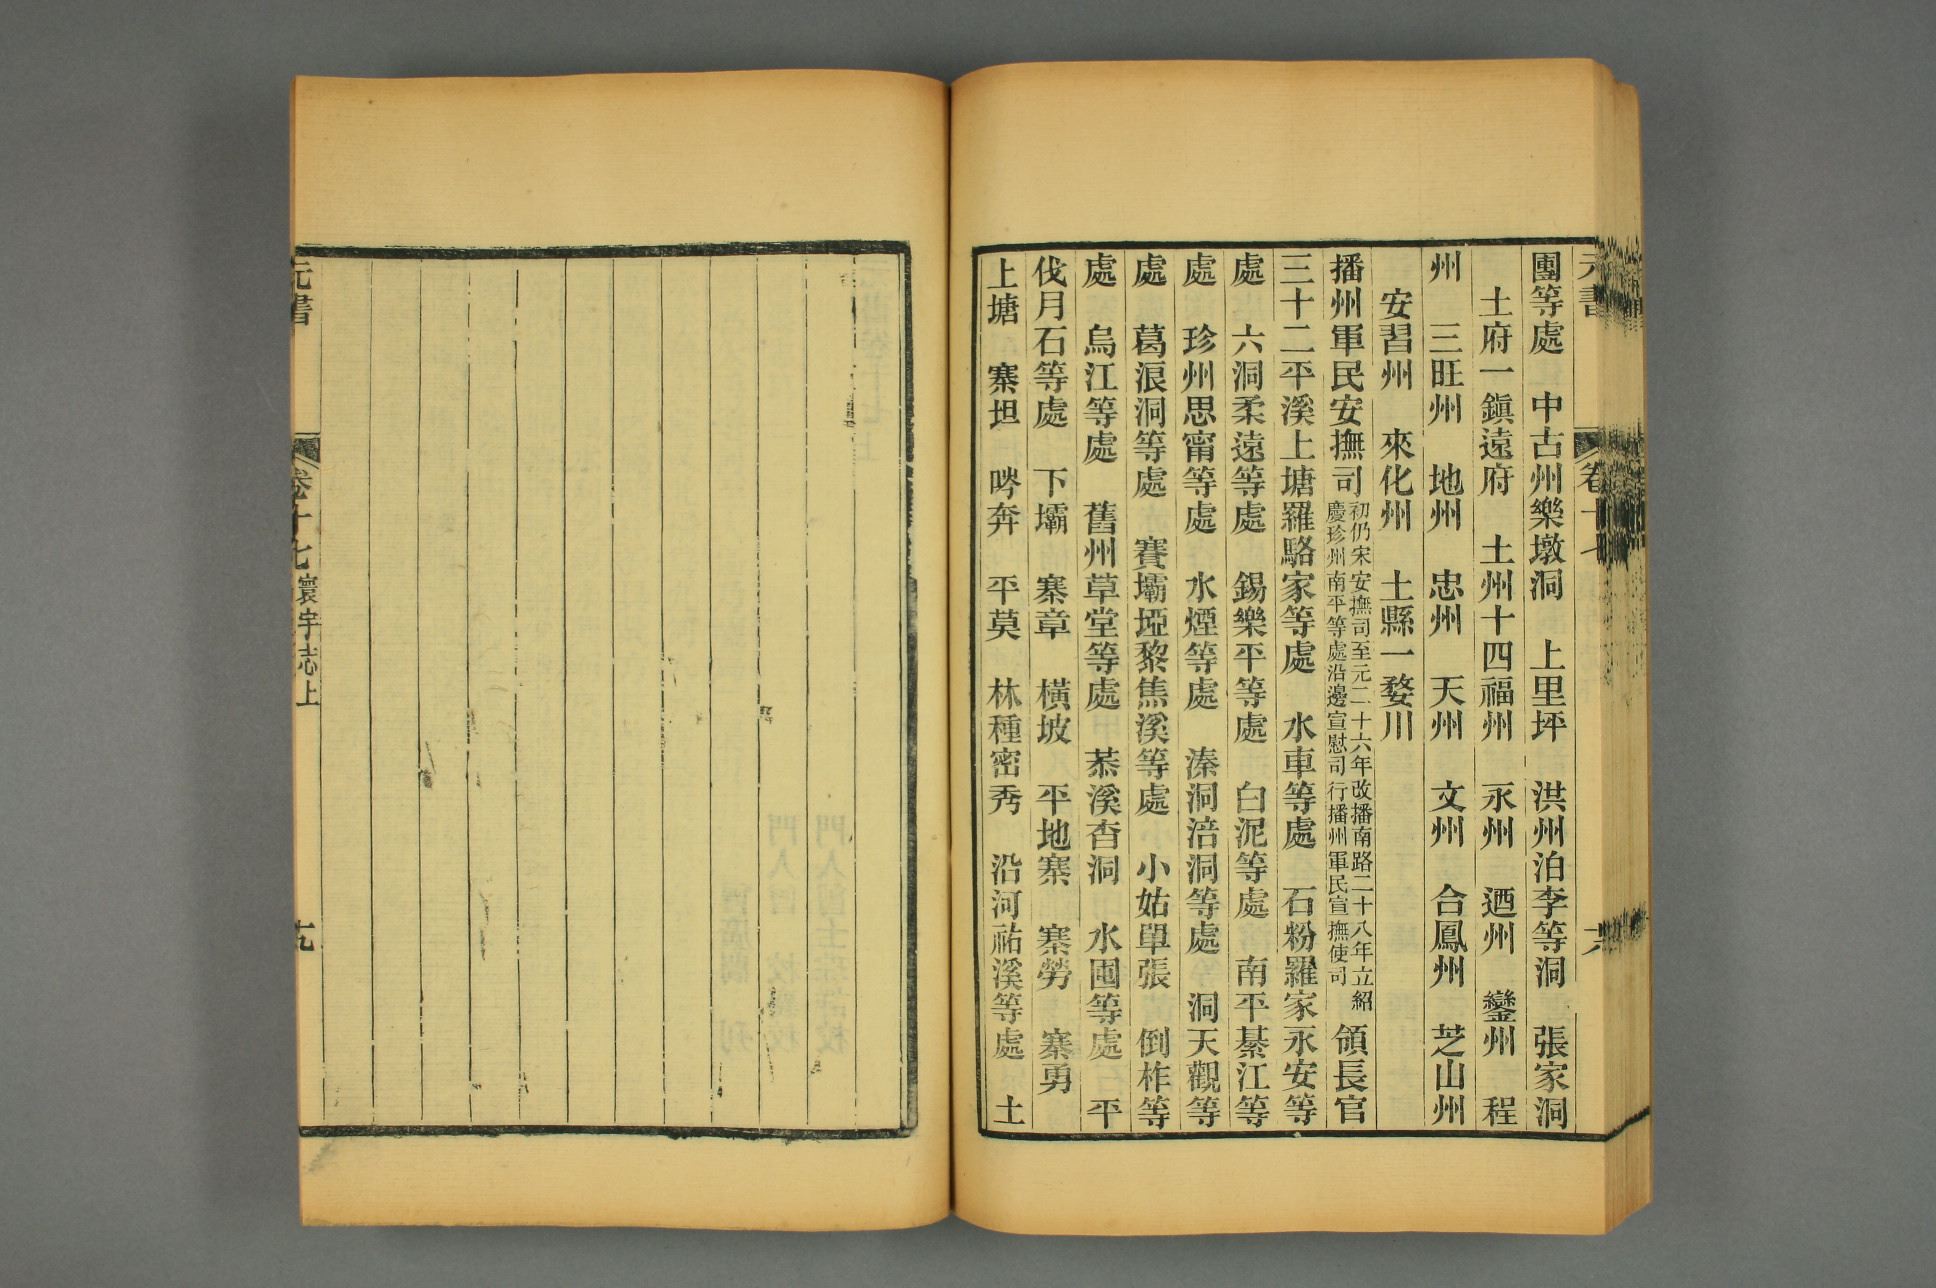 團等處　中古州樂墩洞　上里坪　洪州泊李等洞　張家洞
土府一鎭遠府　土州十四福州　永州　迺州　鑾州　程
州　三旺州　地州　忠州　天州　文州　合鳳州　芝山州
安習州　來化州　土縣一婺川
播州軍民安撫司
初仍宋安撫司至元二十六年改播南路二十八年立紹
慶珍州南平等處沿邊宣慰司行播州軍民宣撫使司
領長官
三十二平溪上塘羅駱家等處　水車等處　石粉羅家永安等
處　六洞柔遠等處　錫樂平等處　白泥等處　南平綦江等
處　珍州思甯等處　水煙等處　溱洞涪洞等處　洞天觀等
處　葛浪洞等處　賽壩埡黎焦溪等處　小姑單張　倒柞等
處　烏江等處　舊州草堂等處　恭溪杳洞　水囤等處　平
伐月石等處　下壩　寨章　橫坡　平地寨　寨勞　寨勇
上塘　寨坦　哗奔　平莫　林種密秀　沿河祐溪等處　土
元書
卷十七
寰宇志上